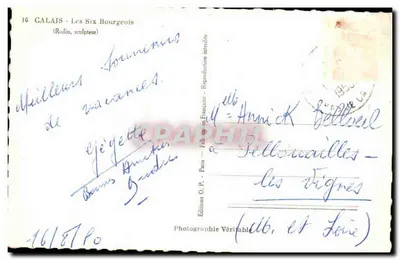 16 CALAIS - Les Six Bourgeois
(Rodin, sculpteur)
Meilleurs Souvenirs
de vacances.
Gégette
Bonnes Amitiés
Melle Annick Belloeil
à Pellouailles-
les Vignes
(M. et Loire)
16/8/50
Editions O. P. - Paris - Fabrication Française - Reproduction interdite
Photographie Véritable